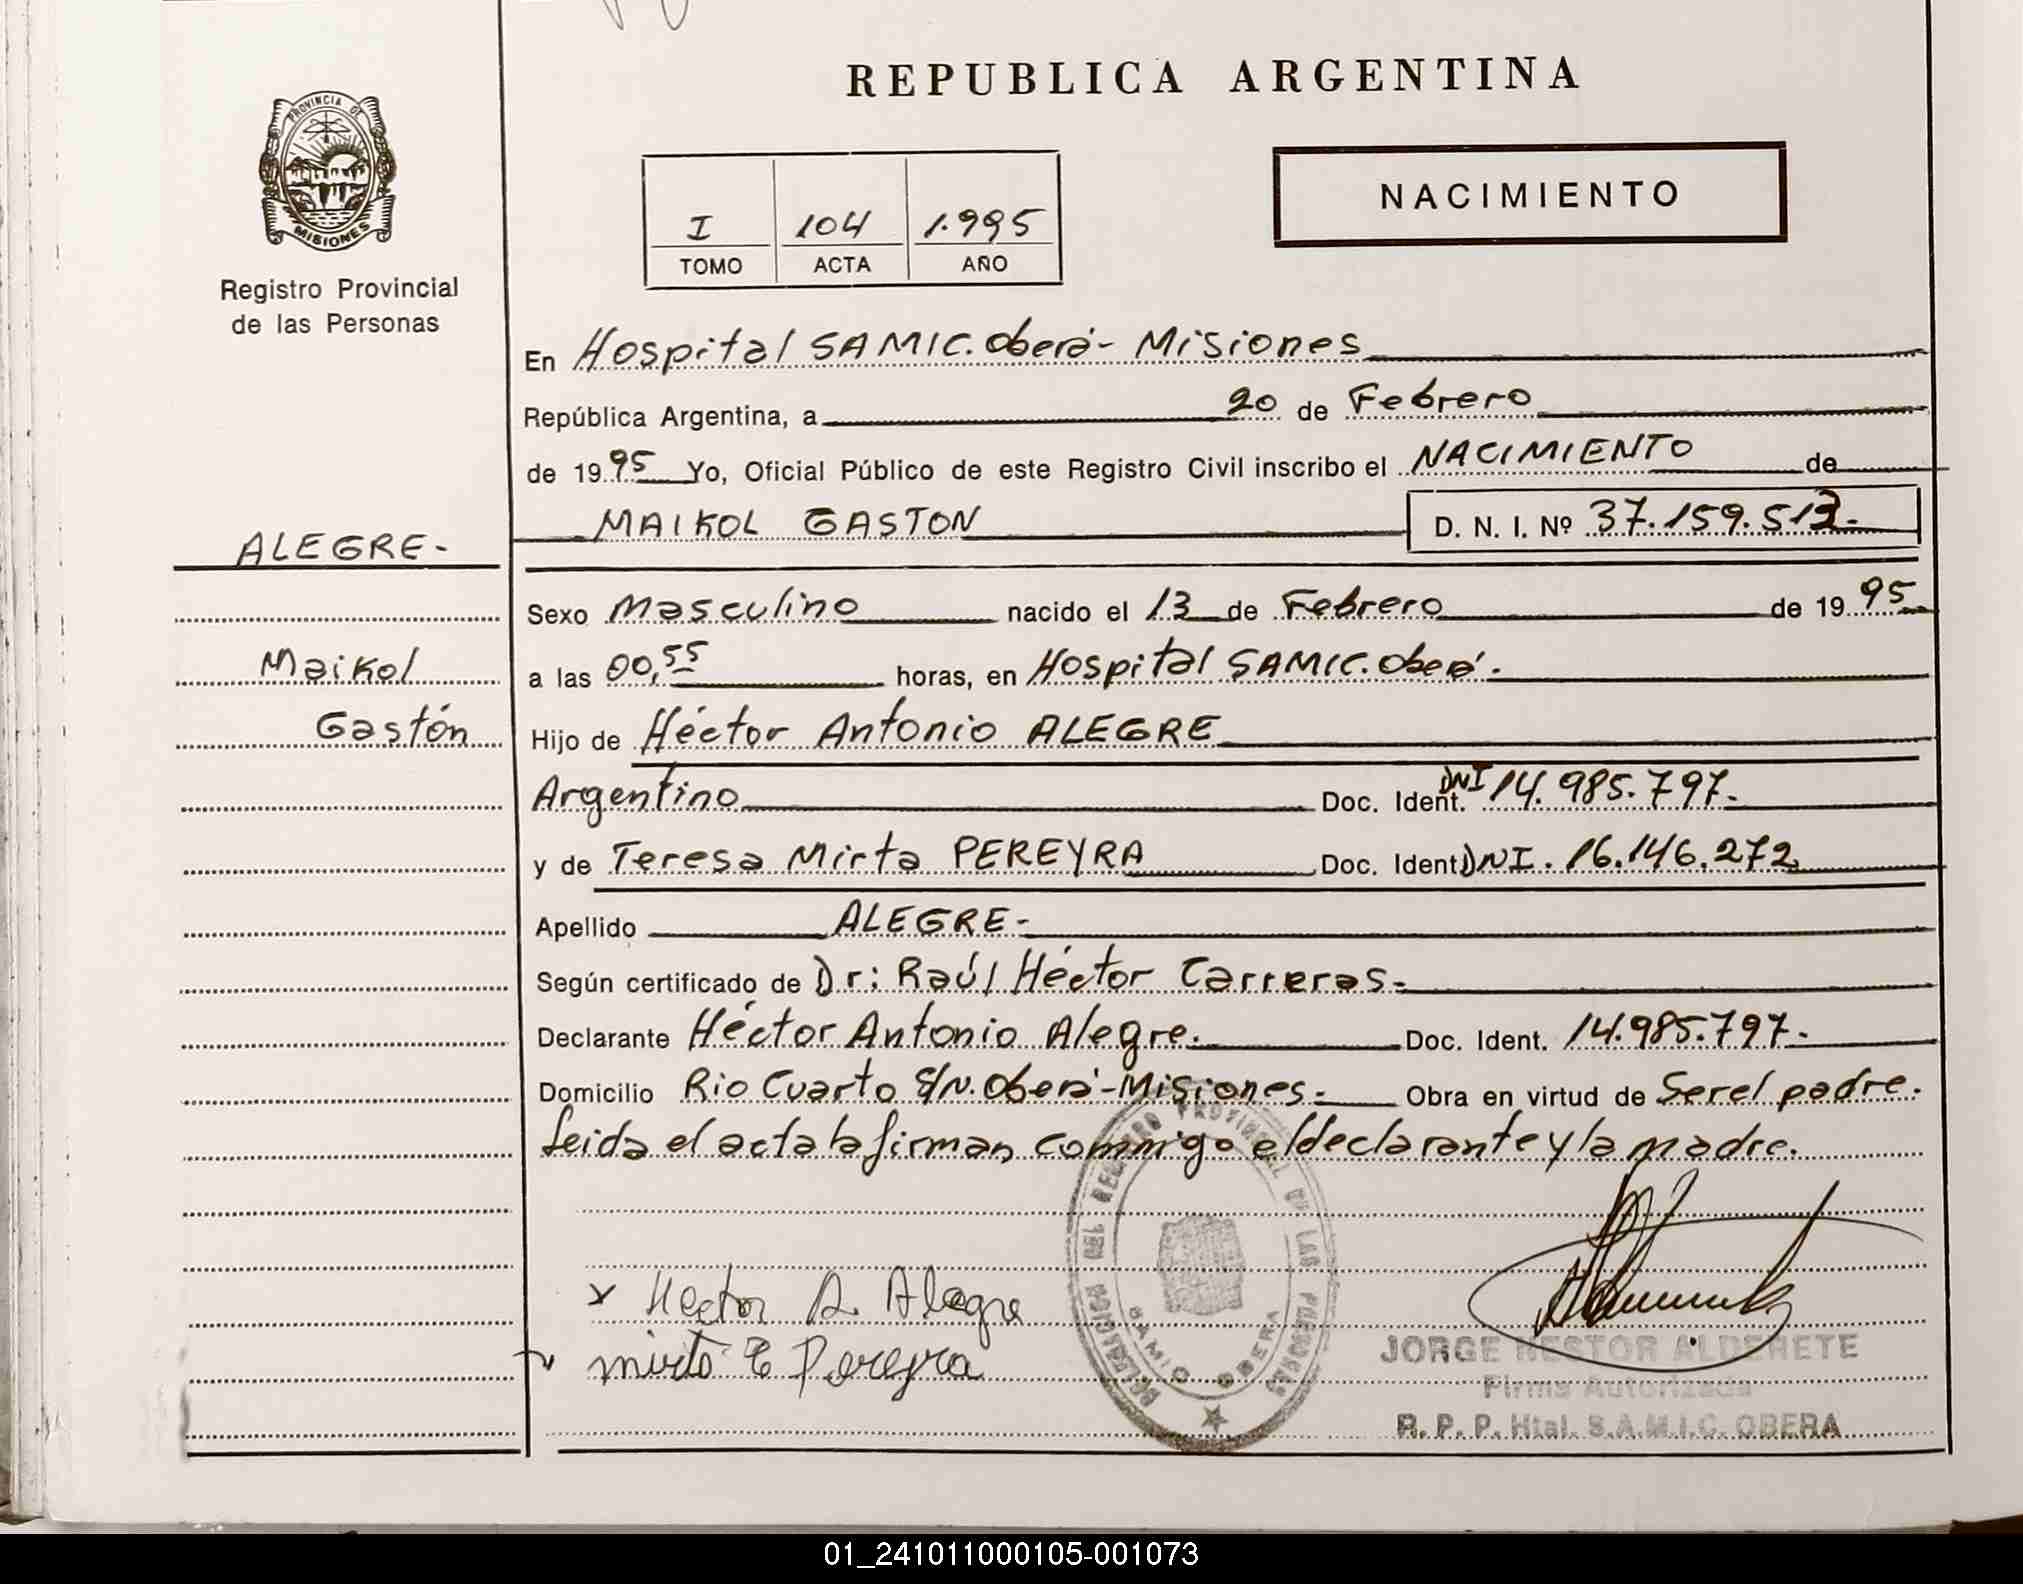 REPUBLICA ARGENTINA
PROVINCIA DE
MISIONES
Registro Provincial
de las Personas
I 104 1.995
TOMO ACTA AÑO
NACIMIENTO
En Hospital SAMIC. Oberá - Misiones
República Argentina, a 20 de Febrero
de 19 95 Yo, Oficial Público de este Registro Civil inscribo el NACIMIENTO de
MAIKOL GASTON D. N. I. Nº 37.159.513.-
ALEGRE.-
Sexo Masculino nacido el 13 de Febrero de 19 95
Maikol
a las 00,55 horas, en Hospital SAMIC. Oberá.-
Gastón
Hijo de Héctor Antonio ALEGRE
Argentino Doc. Ident. DNI 14.985.797.-
y de Teresa Mirta PEREYRA Doc. Ident. DNI. 16.146.272
Apellido ALEGRE.-
Según certificado de Dr: Raúl Héctor Carreras.-
Declarante Héctor Antonio Alegre. Doc. Ident. 14.985.797.-
Domicilio Rio Cuarto S/N. Oberá - Misiones.- Obra en virtud de Ser el padre.
Leida el acta la firman conmigo el declarante y la madre.
x Hector A. Alegre
mirta T Pereyra
DELEGACION DEL REGISTRO PROVINCIAL DE LAS PERSONAS
SAMIC OBERA
JORGE NESTOR ALDERETE
Firma Autorizada
R. P. P. Htal. S.A.M.I.C. OBERA
01_241011000105-001073